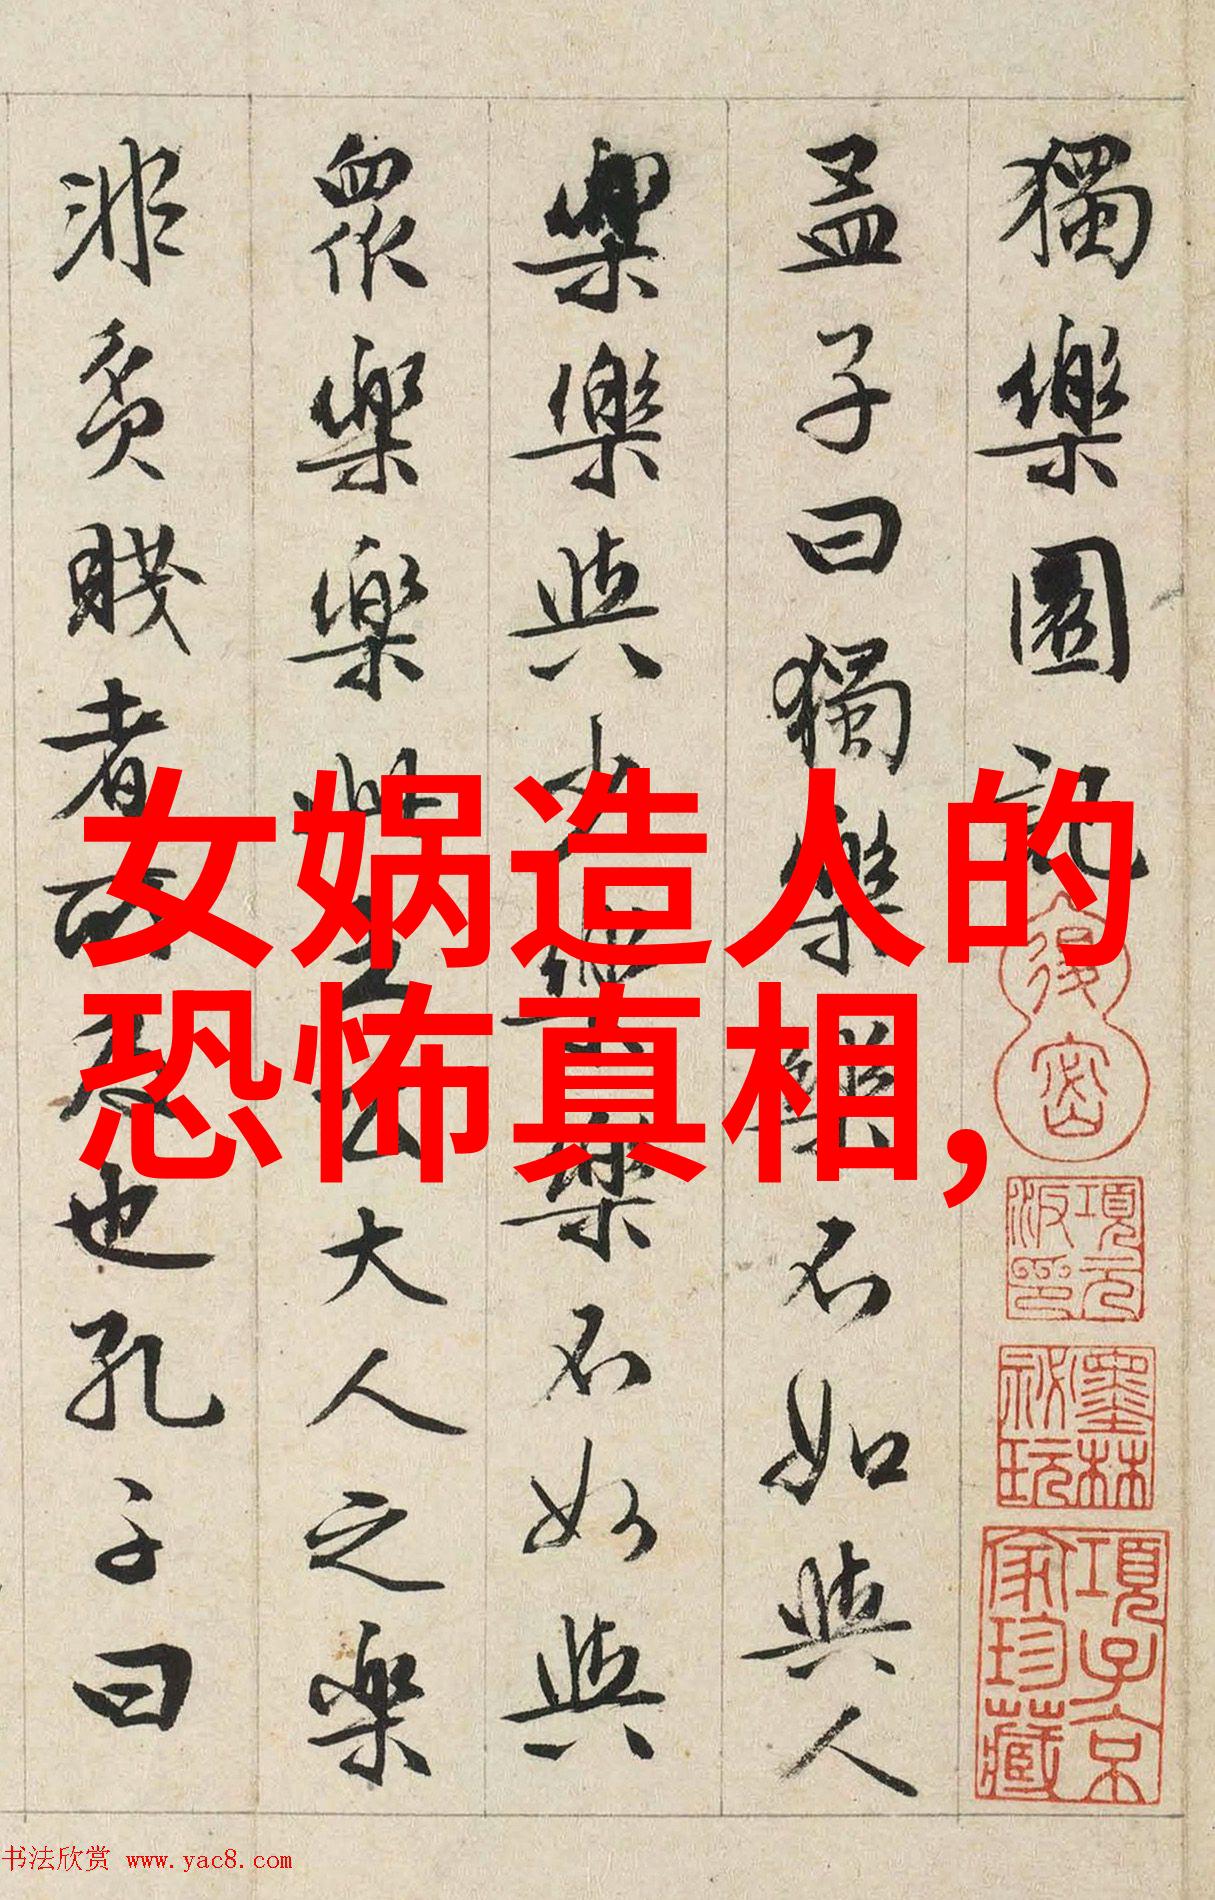 獨樂園記
孟子曰獨樂樂不如與人
樂樂與少樂樂不如與
眾樂樂此王公大人之樂
非貧賤者所及也孔子曰
女娲造人的
恐怖真相,
項元汴印
墨林祕玩
項子京家珍藏
书法欣赏 www.yac8.com